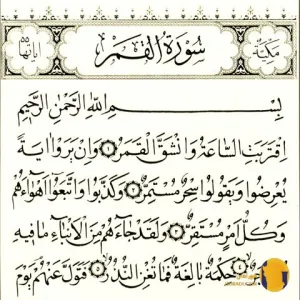 مكية
سورة القمر
آياتها ٥٥
بِسْمِ اللَّهِ الرَّحْمَنِ الرَّحِيمِ
اِقْتَرَبَتِ السَّاعَةُ وَانْشَقَّ الْقَمَرُ ١ وَاِنْ يَرَوْا اٰيَةً
يُعْرِضُوا وَيَقُولُوا سِحْرٌ مُسْتَمِرٌّ ٢ وَكَذَّبُوا وَاتَّبَعُوا اَهْوَاءَهُمْ
وَكُلُّ اَمْرٍ مُسْتَقِرٌّ ٣ وَلَقَدْ جَاءَهُمْ مِنَ الْاَنْبَاءِ مَا فِيهِ
حِكْمَةٌ بَالِغَةٌ فَمَا تُغْنِ النُّذُرُ ٥ فَتَوَلَّ عَنْهُمْ يَوْمَ